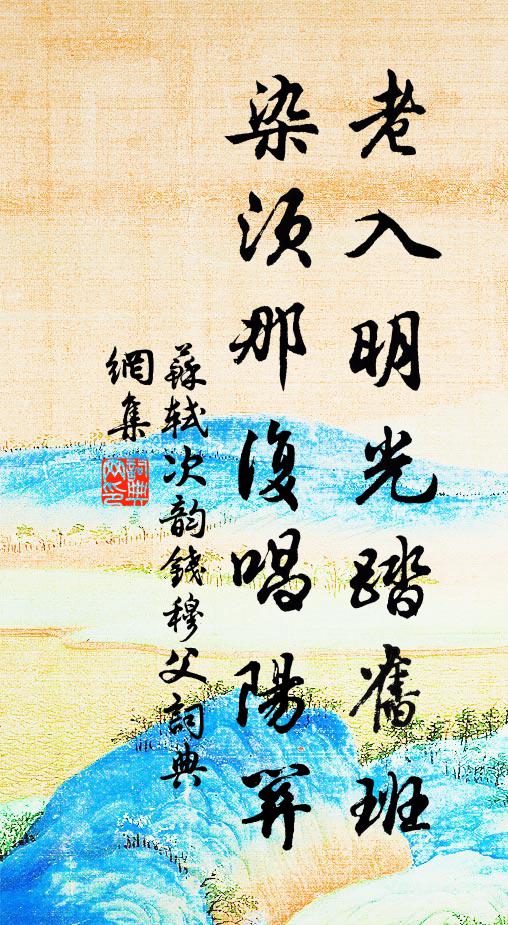 老入明光踏舊班
染須那復唱陽關
蘇軾次韵錢穆父詞典
網集
詞典網印